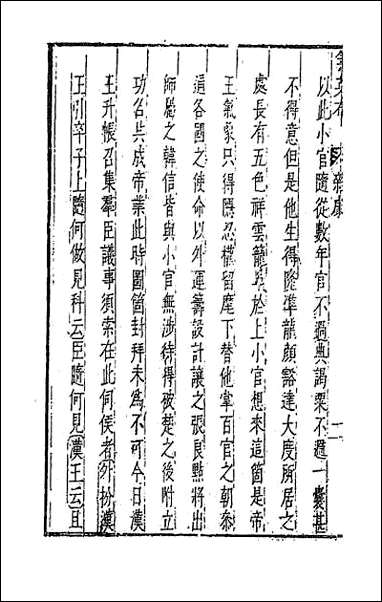 以此小官隨從數年官不過典謁粟不過一囊甚
不得意但是他生得隆準龍顏豁達大度所居之
處長有五色祥雲籠罩於上小官想來這箇是帝
王氣象只得隱忍權留麾下替他掌百官之朝叅
通各國之使命以外運籌設計讓之張良點將出
師屬之韓信皆與小官無涉待得破楚之後附立
功名共成帝業此時圖箇封拜未爲不可今日漢
王升帳召集羣臣議事須索在此伺候者外扮漢
王引卒子上隨何做見科云臣隨何見漢王云且